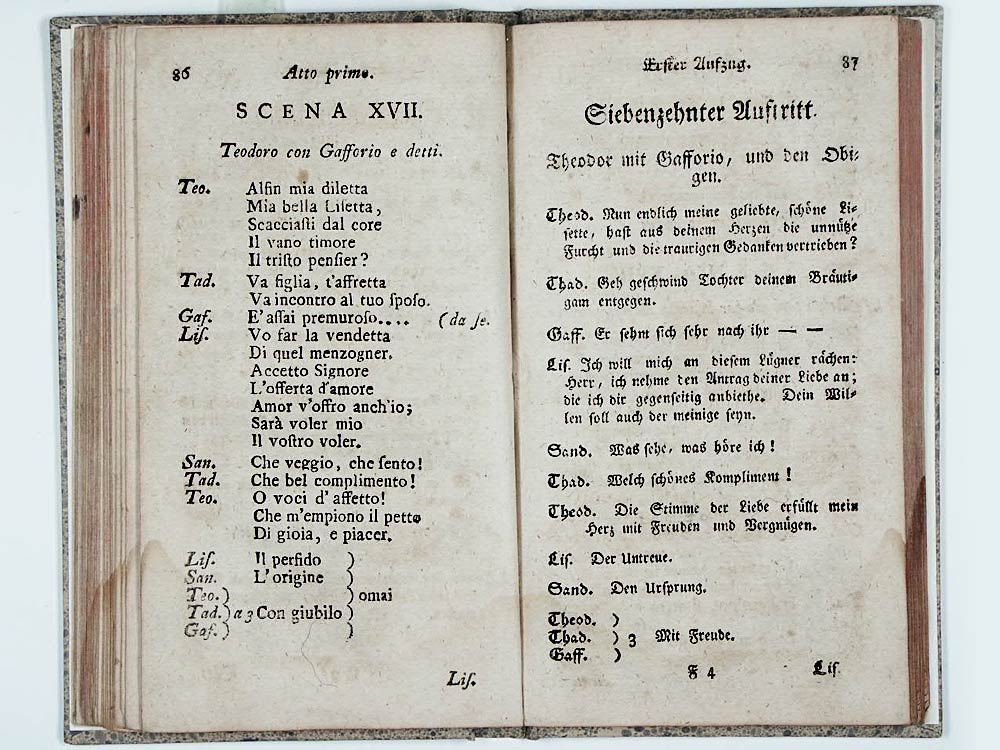 86
Atto primo.
SCENA XVII.
Teodoro con Gafforio e detti.
Teo. Alfin mia diletta
Mia bella Liſetta,
Scacciaſti dal core
Il vano timore
Il triſto penſier?
Tad. Va figlia, t'affretta
Va incontro al tuo ſpoſo.
Gaf. E' aſſai premuroſo.... (da ſe.
Liſ. Vo far la vendetta
Di quel menzogner.
Accetto Signore
L'offerta d'amore
Amor v'offro anch'io;
Sarà voler mio
Il voſtro voler.
San. Che veggio, che ſento!
Tad. Che bel complimento!
Teo. O voci d'affetto!
Che m'empiono il petto
Di gioia, e piacer.
Liſ. Il perfido )
San. L'origine )
Teo.) ) omai
Tad.) a 3 Con giubilo )
Gaf.) )
Liſ.
Erſter Aufzug. 87
Siebenzehnter Auftritt.
Theodor mit Gafforio, und den Obi-
gen.
Theod. Nun endlich meine geliebte, ſchöne Li-
ſette, haſt aus deinem Herzen die unnütze
Furcht und die traurigen Gedanken vertrieben?
Thad. Geh geſchwind Tochter deinem Bräuti-
gam entgegen.
Gaff. Er ſehnt ſich ſehr nach ihr — —
Liſ. Ich will mich an dieſem Lügner rächen:
Herr, ich nehme den Antrag deiner Liebe an;
die ich dir gegenſeitig anbiethe. Dein Wil-
len ſoll auch der meinige ſeyn.
Sand. Was ſehe, was höre ich!
Thad. Welch ſchönes Kompliment!
Theod. Die Stimme der Liebe erfüllt mein
Herz mit Freuden und Vergnügen.
Liſ. Der Untreue.
Sand. Den Urſprung.
Theod. )
Thad. ) 3 Mit Freude.
Gaff. )
F 4
Liſ.